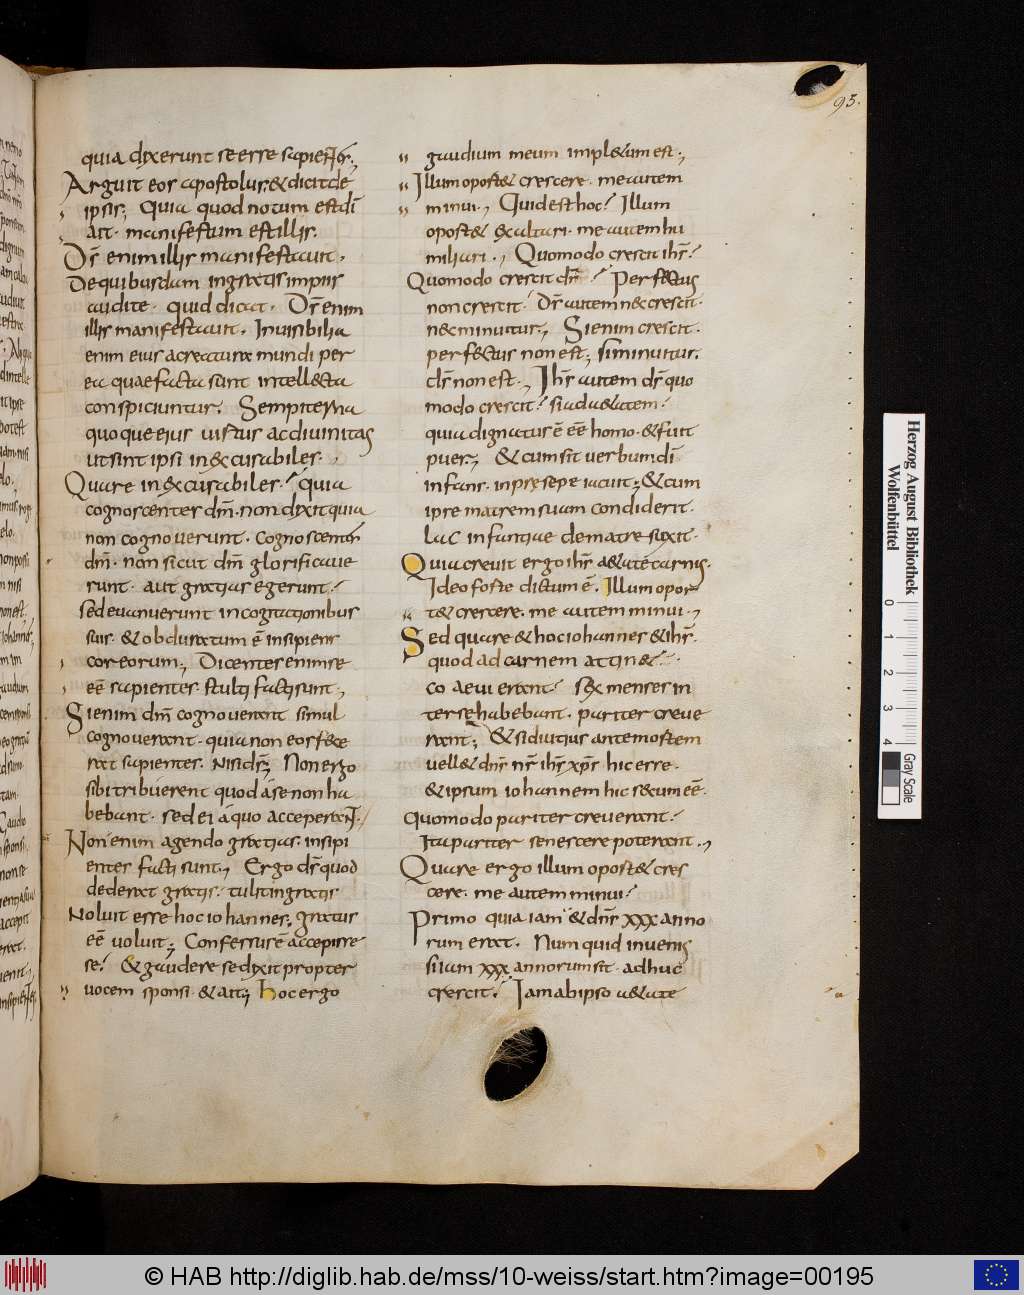 95.
quia dixerunt se esse sapientes.,
Arguit eos apostolus, & dicit de
ipsis; Quia quod notum est di
ait. manifestum est illis.
Ds enim illis manifestauit.
De quibusdam ingratis impiis
audite. quid dicat. Ds enim
illis manifestauit. Inuisibilia
enim eius a creatura mundi per
ea quae facta sunt intellecta
conspiciuntur. Sempiterna
quoque eius uirtus ac diuinitas
ut sint ipsi inexcusabiles.,
Quare inexcusabiles? quia
cognoscentes dm. non dixit quia
non cognouerunt. Cognoscentes
dm. non sicut dm glorificaue
runt. aut gratias egerunt?
sed euanuerunt in cogitationibus
suis. & obduratum e insipiens
cor eorum., Dicentes enim se
ee sapientes. stulti facti sunt.,
Si enim dm cognouerant simul
cognouerant. quia non eos fece
rat sapientes. nisi ds; Non ergo
sibi tribuerent quod a se non ha
bebant. sed ei a quo acceperant.
Non enim agendo gratias. insipi
entes facti sunt., Ergo ds quod
dederat gratis. tulit ingratis
Noluit esse hoc iohannes. gratus
ee uoluit; Confessus e accepisse
se? & gaudere se dixit propter
uocem sponsi. & ait; hoc ergo
gaudium meum impletum est.,
Illum oportet crescere. me autem
minui., Quid est hoc? Illum
oportet exaltari. me autem hu
miliari., Quomodo crescit ihs?
Quomodo crescit ds? Perfectus
non crescit. Ds autem nec crescit.
nec minuitur., Si enim crescit.
perfectus non est; si minuitur.
ds non est., Ihs autem ds quo
modo crescit? si ad aetatem?
quia dignatus e ee homo. & fuit
puer; & cum sit uerbum di
infans. in presepe iacuit; & cum
ipse matrem suam condiderit.
lac infantiae de matre suxit.
Quia creuit ergo ihs aetate carnis.
Ideo forte dictum e. Illum opor
tet crescere. me autem minui.,
Sed quare & hoc iohannes & ihs.
quod ad carnem attinet.
coaeui erant? Sex menses in
ter se habebant. pariter creue
rant; & si diutius ante mortem
uellet dns nr ihs xps hic esse.
& ipsum iohannem hic secum ee.
Quomodo pariter creuerant?
Ita pariter senescere poterant.,
Quare ergo illum oportet cres
cere. me autem minui?
Primo quia iam & dns xxx anno
rum erat. Numquid iuuenis
si iam xxx annorum sit. adhuc
crescit? Iam ab ipsa aetate
Herzog August Bibliothek
Wolfenbüttel
0 1 2 3 4
Gray Scale
© HAB http://diglib.hab.de/mss/10-weiss/start.htm?image=00195